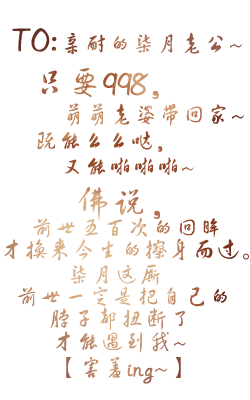 TO:亲耐的柒月老公~
只要998，
萌萌老婆带回家~
既能么么哒，
又能啪啪啪~
佛说，
前世五百次的回眸
才换来今生的擦身而过。
柒月这厮
前世一定是把自己的
脖子都扭断了
才能遇到我~
【害羞ing~】